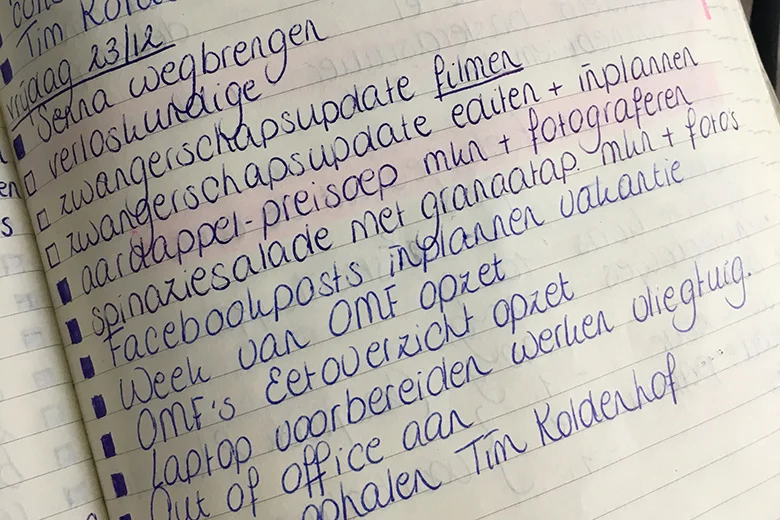 Tim Kolde
vrijdag 23/12
Senna wegbrengen
verloskundige
zwangerschapsupdate filmen
zwangerschapsupdate editen + inplannen
aardappel-preisoep mkn + fotograferen
spinaziesalade met granaatap. mkn + foto's
Facebookposts inplannen vakantie
Week van OMF opzet
OMF's Eetoverzicht opzet
Laptop voorbereiden werken vliegtuig.
Out of office aan
ophalen Tim Koldenhof